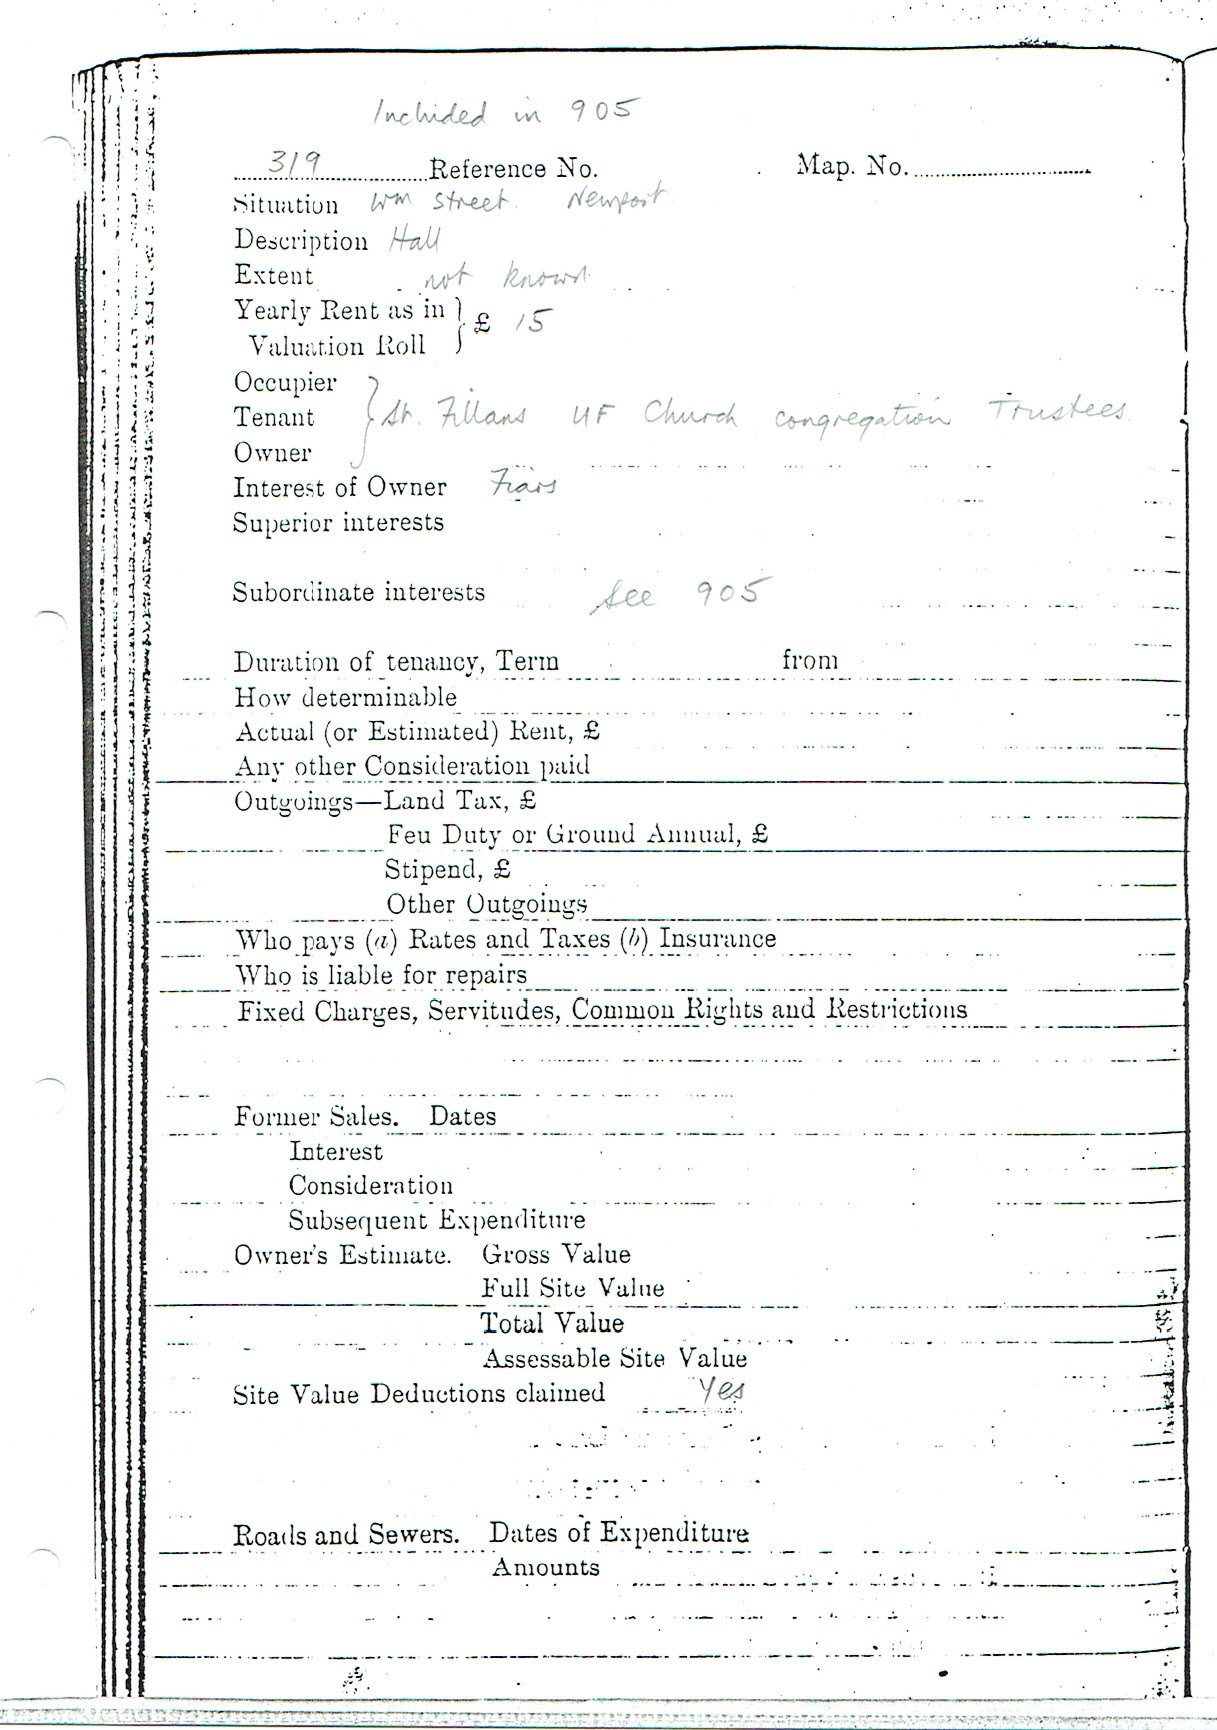 Included in 905
319 Reference No. Map. No.
Situation Wm Street. Newport
Description Hall
Extent not known
Yearly Rent as in
Valuation Roll £ 15
Occupier
Tenant St. Fillans UF Church congregation Trustees
Owner
Interest of Owner Fiars
Superior interests
Subordinate interests See 905
Duration of tenancy, Term from
How determinable
Actual (or Estimated) Rent, £
Any other Consideration paid
Outgoings—Land Tax, £
Feu Duty or Ground Annual, £
Stipend, £
Other Outgoings
Who pays (a) Rates and Taxes (b) Insurance
Who is liable for repairs
Fixed Charges, Servitudes, Common Rights and Restrictions
Former Sales. Dates
Interest
Consideration
Subsequent Expenditure
Owner's Estimate. Gross Value
Full Site Value
Total Value
Assessable Site Value
Site Value Deductions claimed Yes
Roads and Sewers. Dates of Expenditure
Amounts